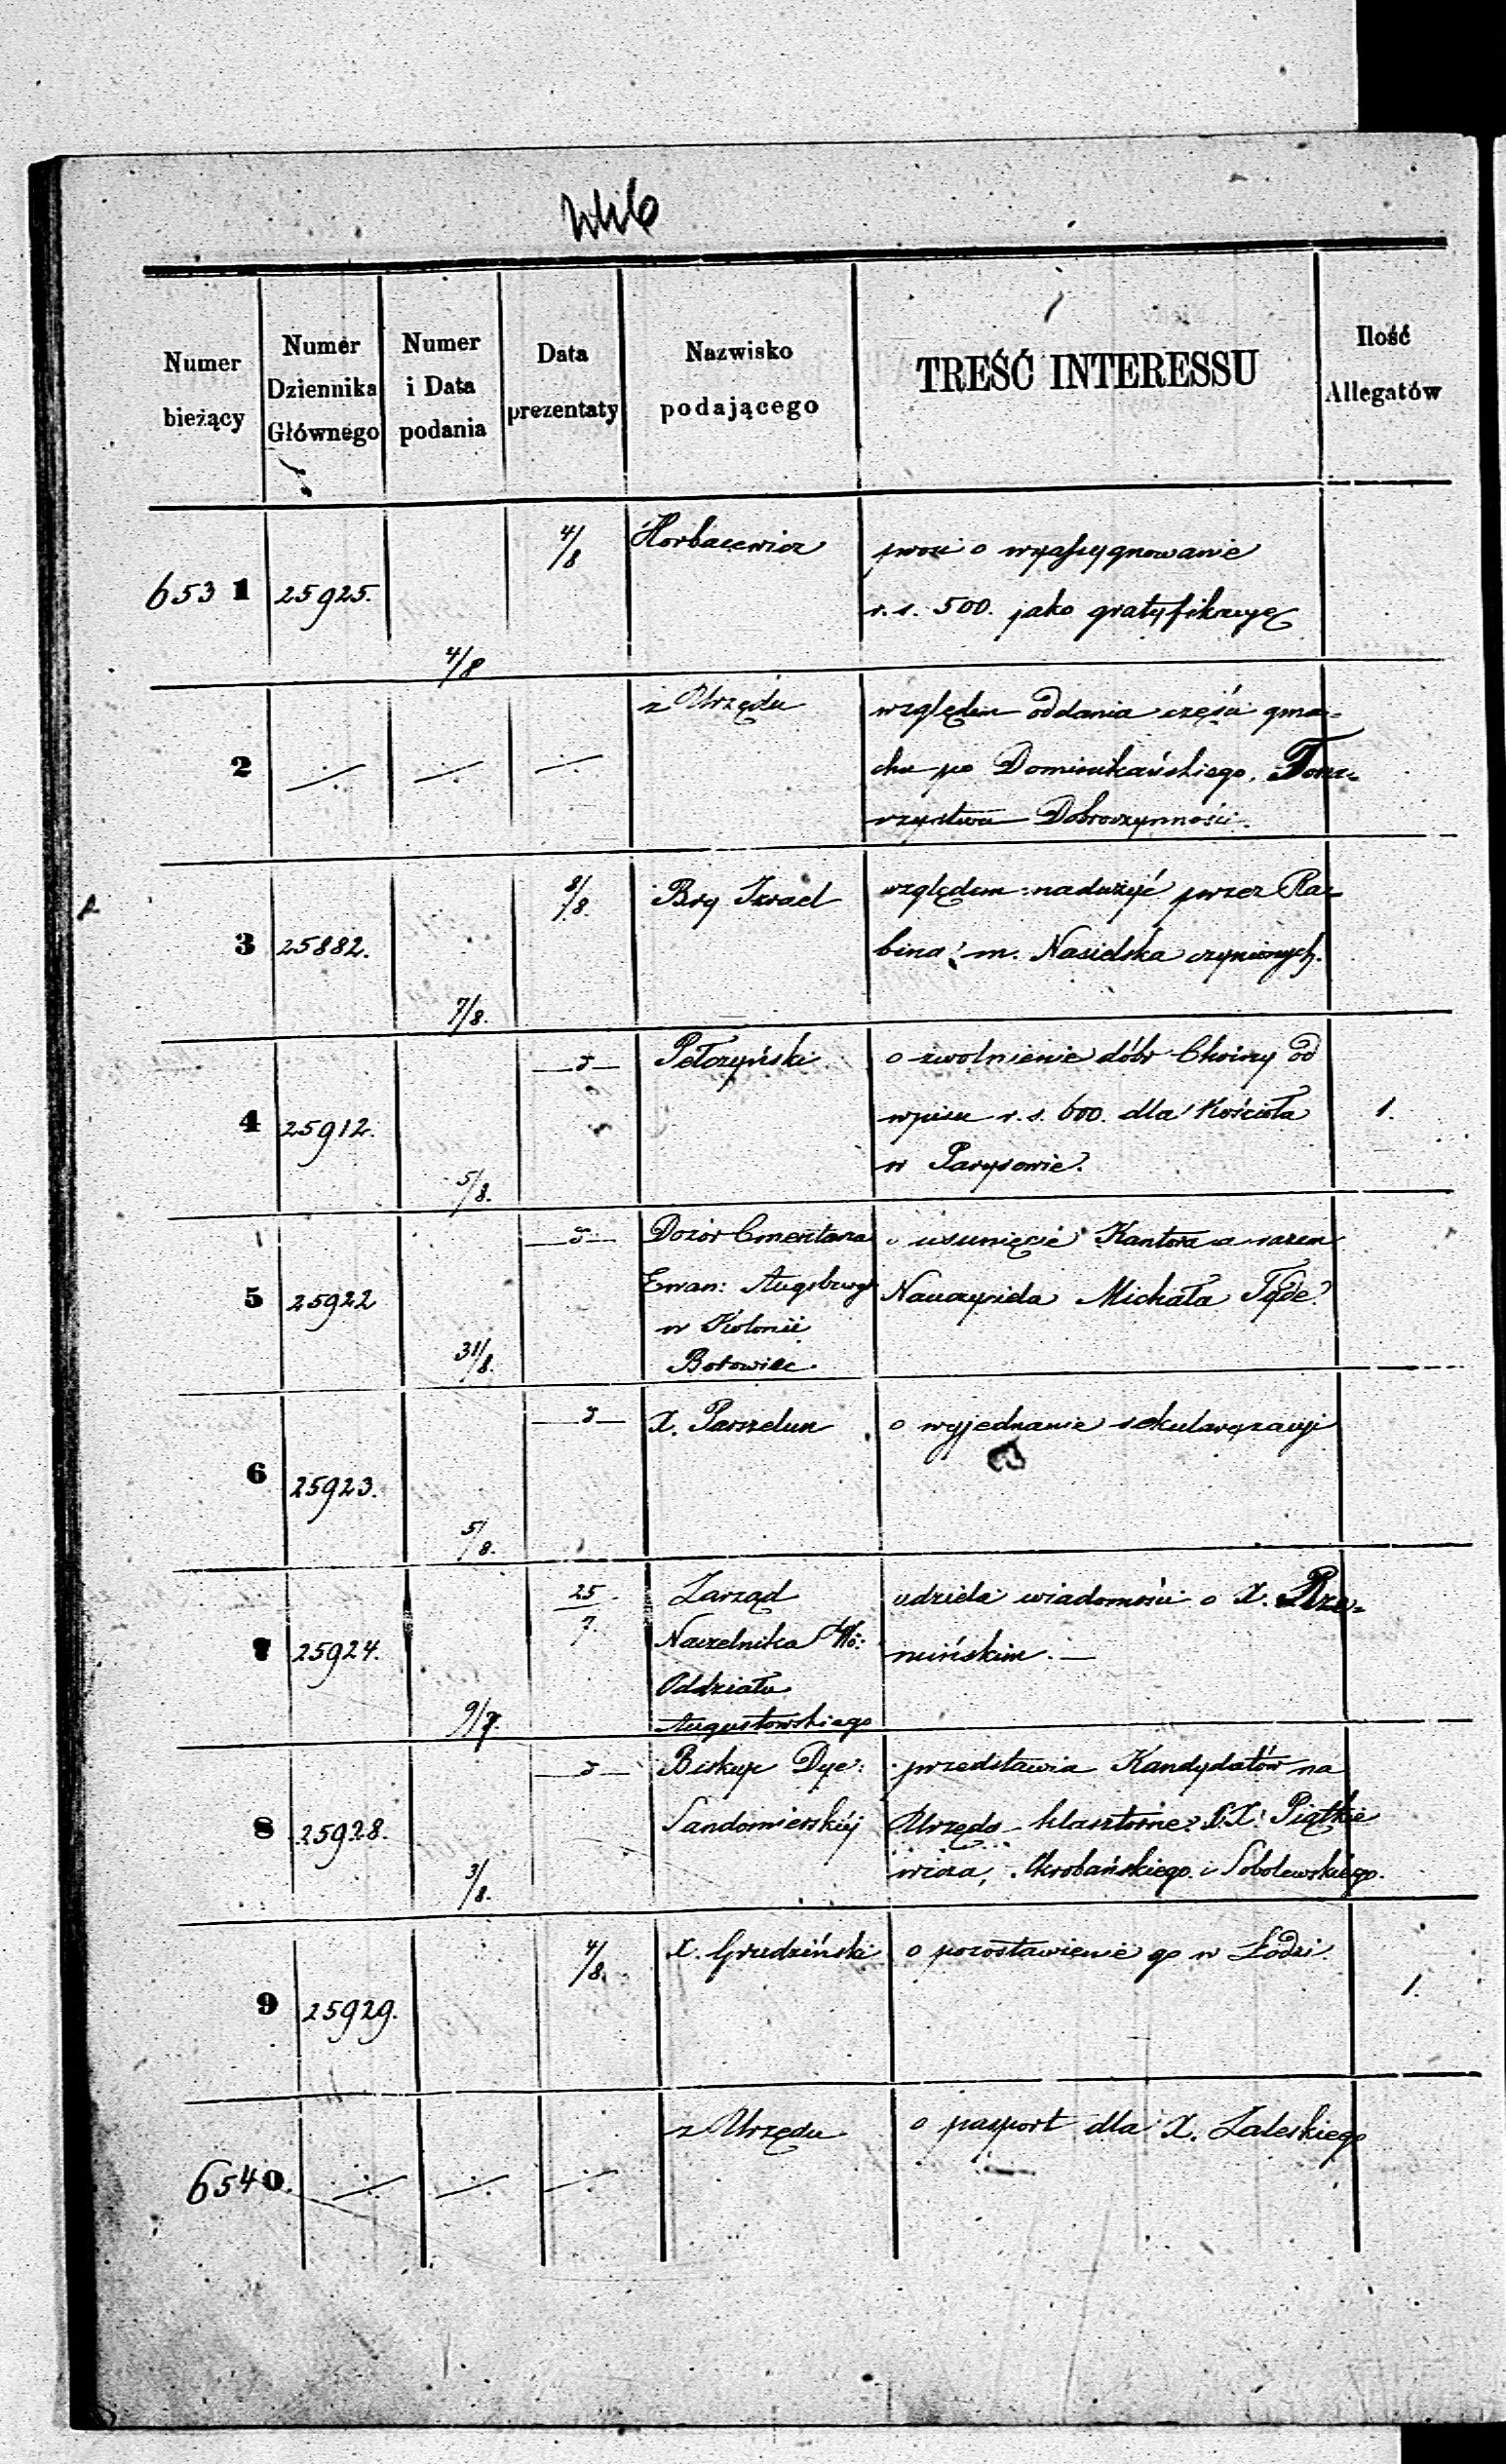 Numer bieżący
Numer Dziennika Głównego
Numer i Data podania
Data prezentaty
Nazwisko podającego
TREŚĆ INTERESSU
Ilość Allegatów
6531
25925.
4/8
4/8
Horbacewicz
prosi o wyassygnowanie
r. s. 500. jako gratyfikacyę
2
÷
÷
÷
z Urzędu
względem oddania części gma-
chu po Dominikańskiego, Towa-
rzystwu Dobroczynności.
3
25882.
7/8.
8/8.
Bry Izrael
względem nadużyć przez Ra-
bina m. Nasielska czynionych.
4
25912.
5/8.
Pełczyński
o zwolnienie dóbr Choiny od
wpisu r. s. 600. dla Kościoła
w Parysowie.
1.
5
25922
31/8.
Dozór Cmentarza
Ewan: Augsburg
w Kolonii
Borowiec.
o usunięcie Kantora a razem
Nauczyciela Michała
6
25923.
5/8.
X. Parszelun
o wyjednanie sekularyzacyi
7
25924.
9/7.
25/7.
Zarząd
Naczelnika Wo:
Oddziału
Augustowskiego
udziela wiadomości o X. Rze-
mińskim. —
8
25928.
3/8.
Biskup Dye:
Sandomierskiéj
przedstawia Kandydatów na
Urzędo klasztorne X.X. Piątkie
wicza, Skrobańskiego i Sobolewskiego.
9
25929.
4/8.
X. Grudziński
o pozostawienie go w Łodzi.
1.
6540.
÷
÷
÷
z Urzędu
o pasport dla X. Zaleskiego